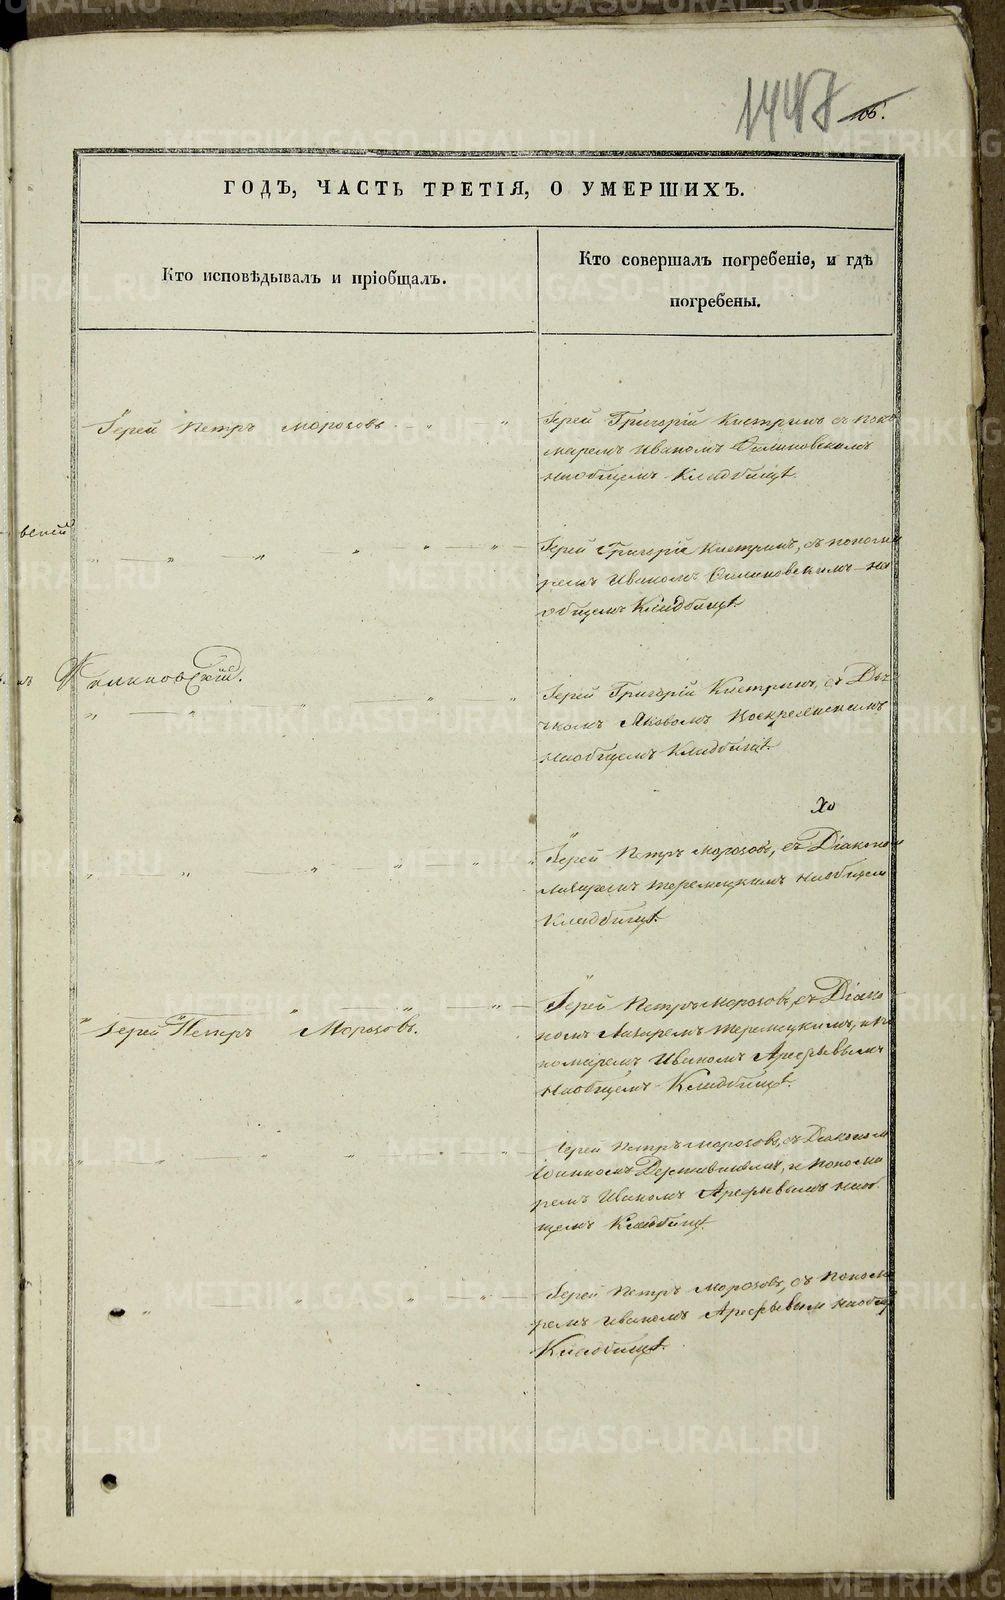 1447 106.
ГОДЪ, ЧАСТЬ ТРЕТІЯ, О УМЕРШИХЪ.
Кто исповѣдывалъ и пріобщалъ.
Кто совершалъ погребеніе, и гдѣ
погребены.
Іерей Петръ Морозовъ
Іерей Григорій Кистринъ съ поно
маремъ Иваномъ
наобщемъ Кладбищѣ.
вскій
Іерей Григорій Кистринъ, съ понома
ремъ Иваномъ на
общемъ Кладбищѣ
Іерей Григорій Кистринъ, съ Дья
чкомъ Яковомъ Воскресенскимъ
наобщемъ Кладбищѣ.
Іерей Петръ Морозовъ, съ Діакономъ
Лазаремъ Теремецкимъ наобщем
Кладбищѣ.
Іерей Петръ Морозовъ.
Іерей Петръ Морозовъ, съ Діако
номъ Лазаремъ Теремецкимъ, и по
номаремъ Иваномъ Арефьевымъ
наобщемъ Кладбищѣ.
Іерей Петръ Морозовъ, съ Діакономъ
Іоанномъ и понома
ремъ Иваномъ Арефьевымъ наоб
щемъ Кладбищѣ.
Іерей Петръ Морозовъ, съ понома
ремъ Иваномъ Арефьевым наобщ
Кладбищѣ.
METRIKI.GASO-URAL.RU